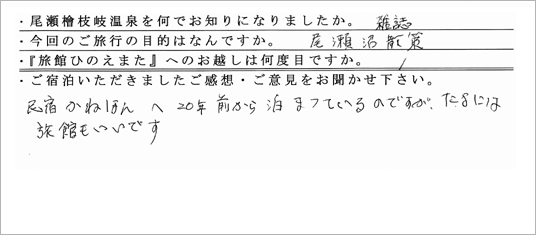 ・尾瀬檜枝岐温泉を何でお知りになりましたか。 雑誌
・今回のご旅行の目的はなんですか。 尾瀬沼散策
・『旅館ひのえまた』へのお越しは何度目ですか。 1
・ご宿泊いただきましたご感想・ご意見をお聞かせ下さい。
民宿かねほん へ 20年前から泊まっているのですが、たまには
旅館もいいです